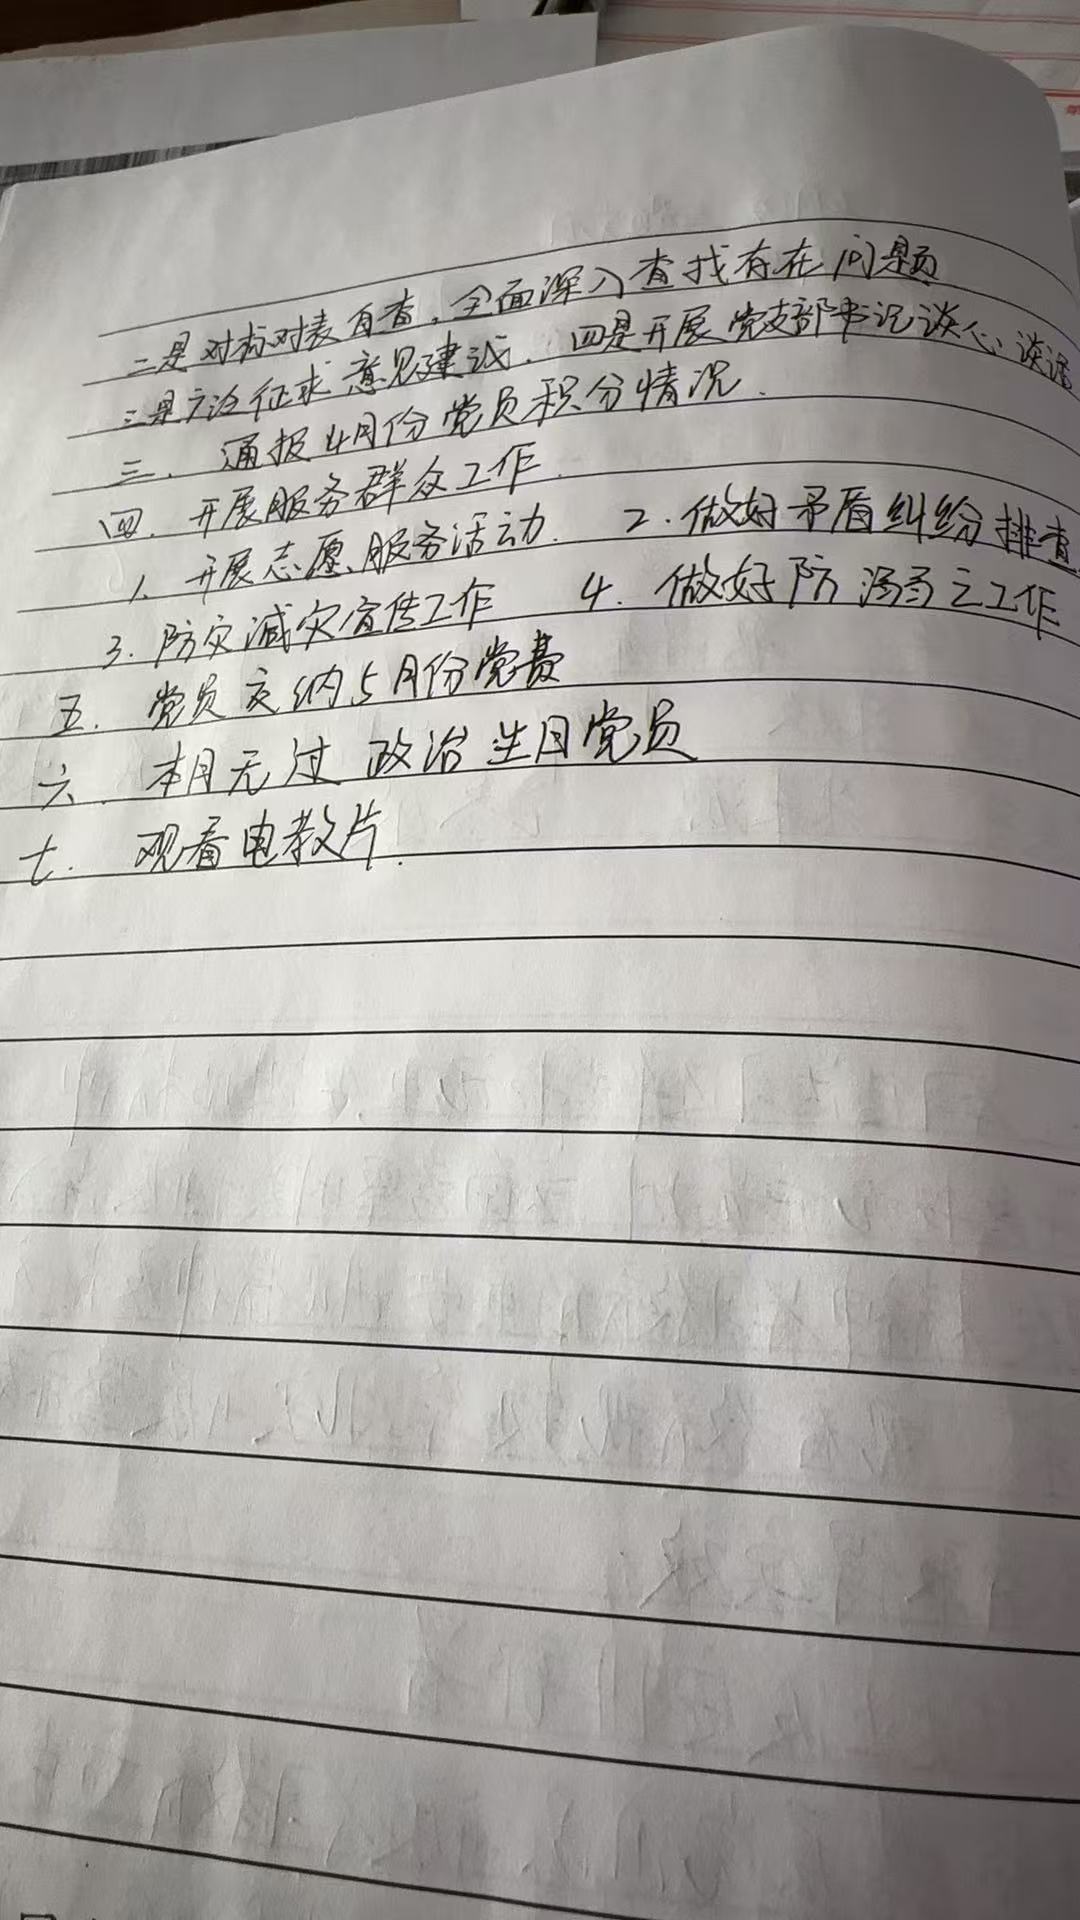 二是对标对表自查,全面深入查找存在问题
三是广泛征求意见建议. 四是开展党支部书记谈心谈话
三. 通报4月份党员积分情况.
四. 开展服务群众工作.
1. 开展志愿服务活动. 2. 做好矛盾纠纷排查
3. 防灾减灾宣传工作 4. 做好防溺亡工作
五. 党员交纳5月份党费
六. 本月无过政治生日党员
七. 观看电教片.